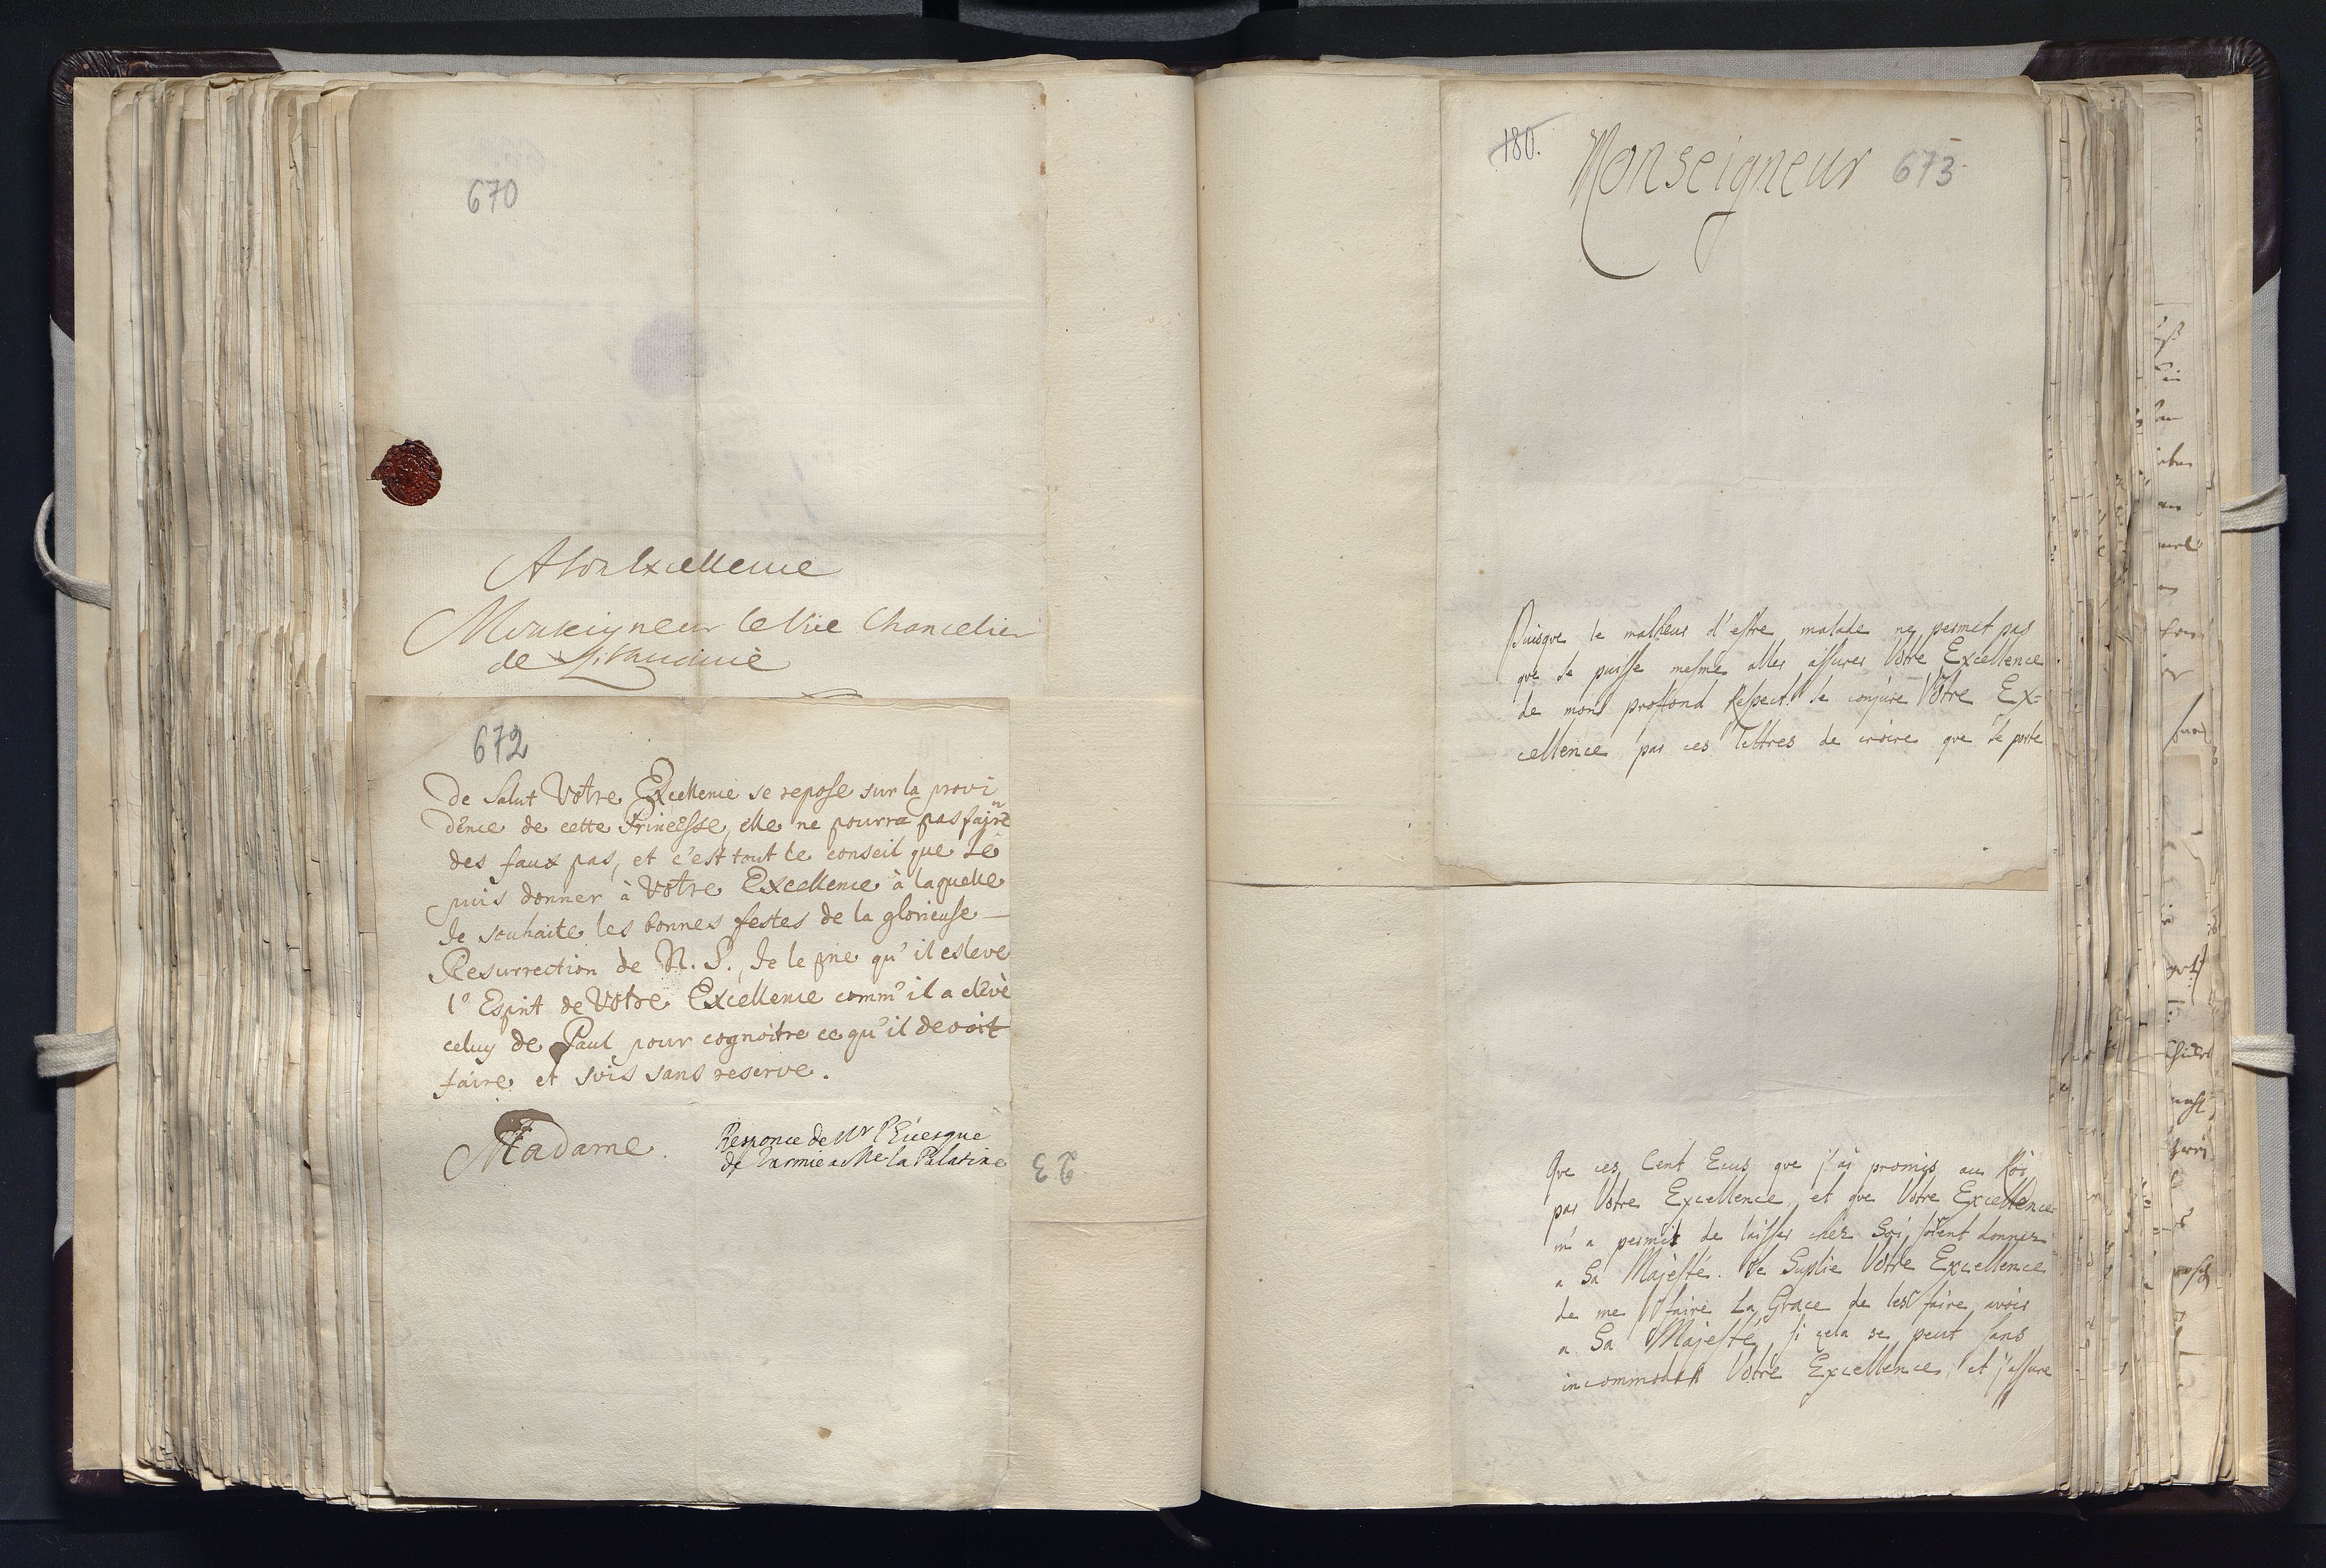 670
A Son Excellence
Monseigneur le Vice Chancelier
de Lithuanie
672
de Salut Votre Excellence se repose sur la provi
dence de cette Princesse, elle ne pourra pas faire
des faux pas, et c'est tout le conseil que Je
puis donner à Votre Excellence à laquelle
Je souhaite les bonnes festes de la glorieuse
Resurrection de N. S., Je le prie qu'il esleve
l'Esprit de Votre Excellence comm' il a elevè
celuy de Paul pour cognoitre ce qu'il devoit
faire et suis sans reserve.
Madame.
Responce de Mr l'Evesque
de Varmie a Me la Palatine
23
180.
Monseigneur 673
Puisque le malheur d'estre malade ne permet pas
que Je puisse mesme aller assurer Votre Excellence
de mons proffond Respect. Je conjure Votre Ex=
cellence par ces lettres de croire que Je porte
Que ces Cent Ecus que j'ai promis au Roi
par Votre Excellence, et que Votre Excellence
m'a permit de laisser chez Soi, soient donnez
a Sa Majesté. Je Suplie Votre Excellence
de me faire La Grace de les faire avoir
a Sa Majesté, si cela se peut sans
incommoder Votre Excellence, et j'assure